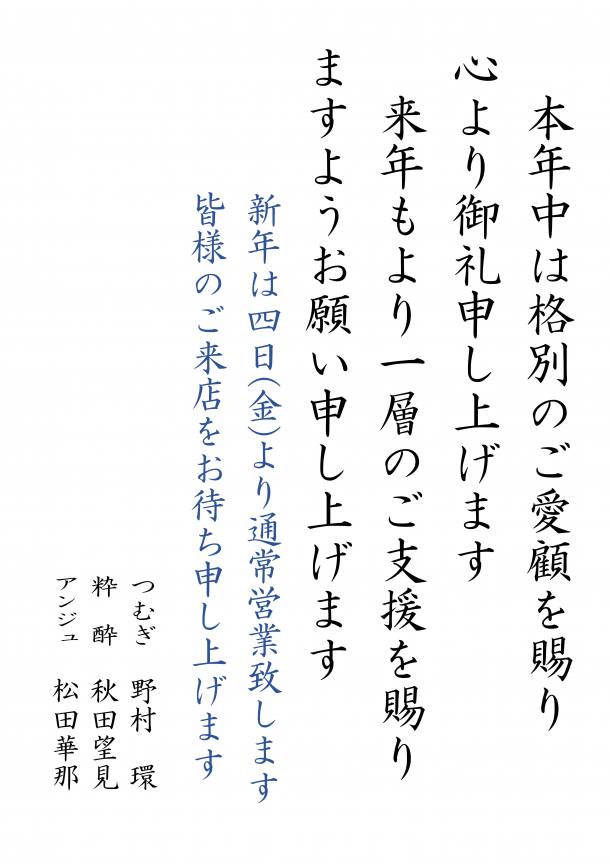 本年中は格別のご愛顧を賜り
心より御礼申し上げます
来年もより一層のご支援を賜り
ますようお願い申し上げます
新年は四日(金)より通常営業致します
皆様のご来店をお待ち申し上げます
つむぎ 野村 環
粋 酔 秋田望見
アンジュ 松田華那